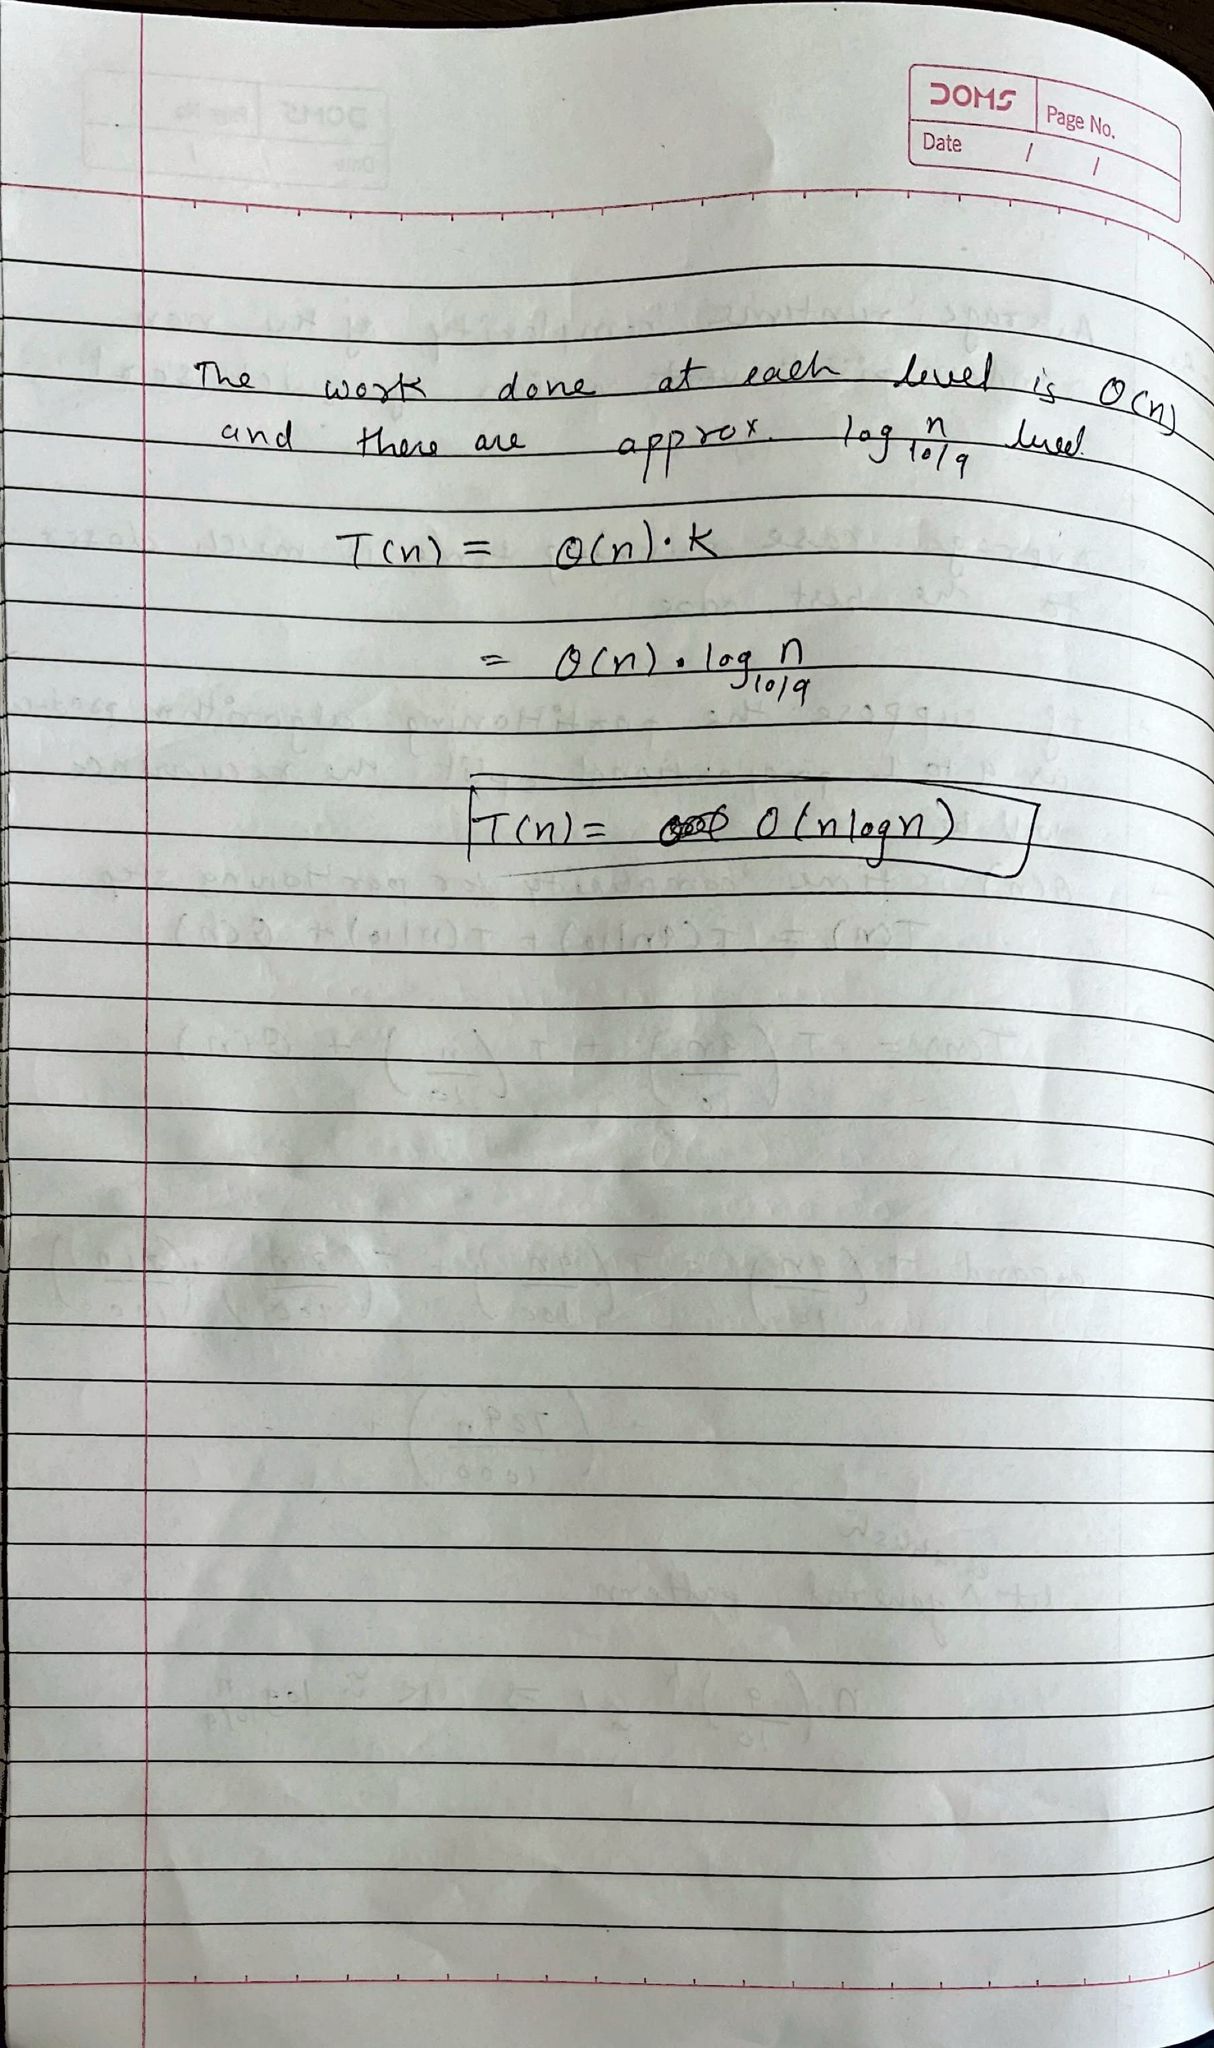 DOMS
Page No.
Date / /
The work done at each level is O(n)
and there are approx. log n 10/9 level.
T(n) = θ(n)·K
= θ(n)·log n 10/9
T(n) = O(nlogn)